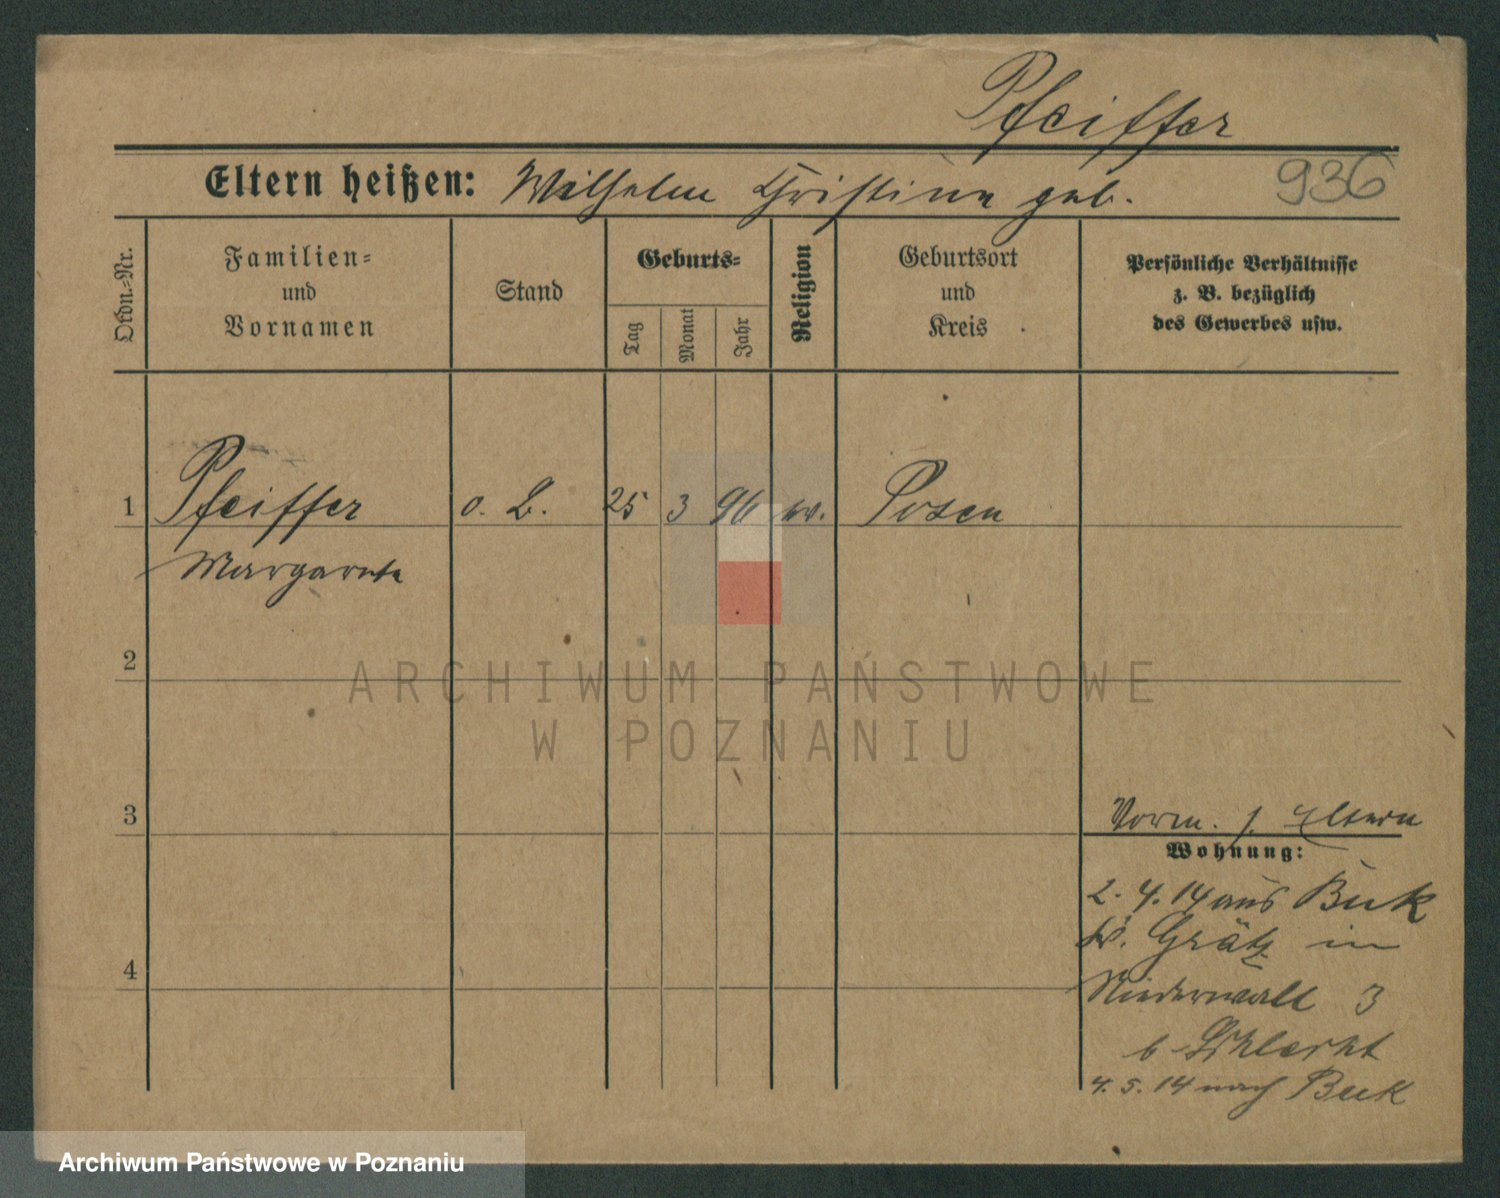 Pfeiffer
Eltern heißen: Wilhelm Christine geb.
936
Ordn.=Nr.
Familien=
und
Vornamen
Stand
Geburts=
Tag
Monat
Jahr
Religion
Geburtsort
und
Kreis
Persönliche Verhältnisse
z. B. bezüglich
des Gewerbes usw.
1 Pfeiffer o. B. 25 3 96 ev. Posen
Margarete
2
ARCHIWUM PAŃSTWOWE
W POZNANIU
3
Vorm. s. Eltern
Wohnung:
2. 4. 14 aus Buk
Kr. Grätz in
4
Niederwall 3
b
4. 5. 14 nach Buk
Archiwum Państwowe w Poznaniu